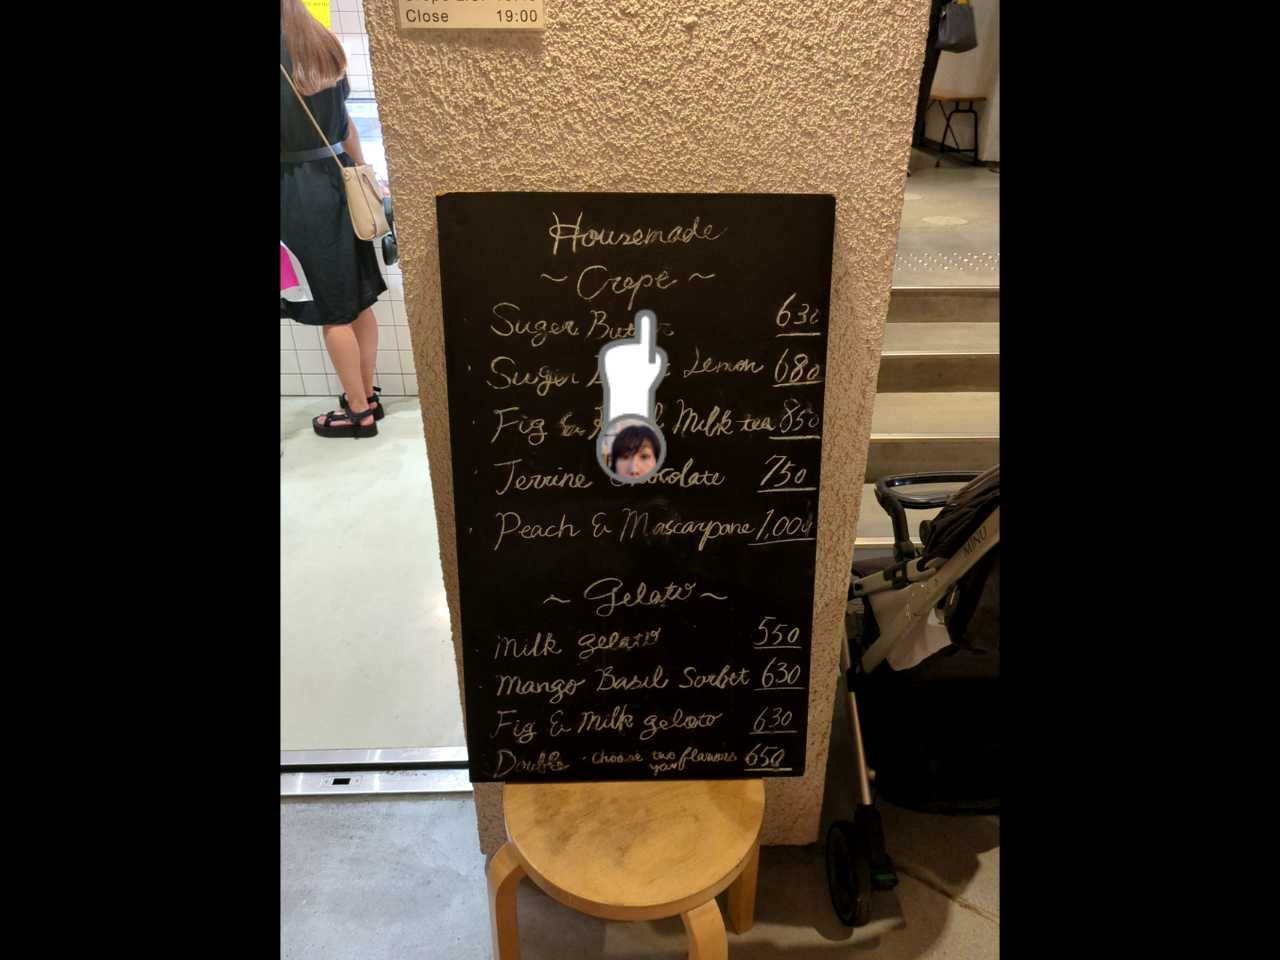 Close 19:00
Housemade
~ Crepe ~
Suger Butter 630
Suger Lemon 680
Fig & Milk tea 850
Terrine Chocolate 750
Peach & Mascarpone 1,000
~ Gelato ~
Milk gelato 550
Mango Basil Sorbet 630
Fig & Milk gelato 630
Double · Choose your two flavors 650
MINU